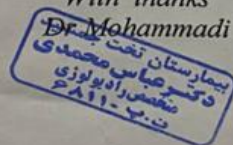 With thanks
Dr Mohammadi
بیمارستان تخت جمشید
دکتر عباس محمدی
متخصص رادیولوژی
ن.پ - ۶۸۱۱۰